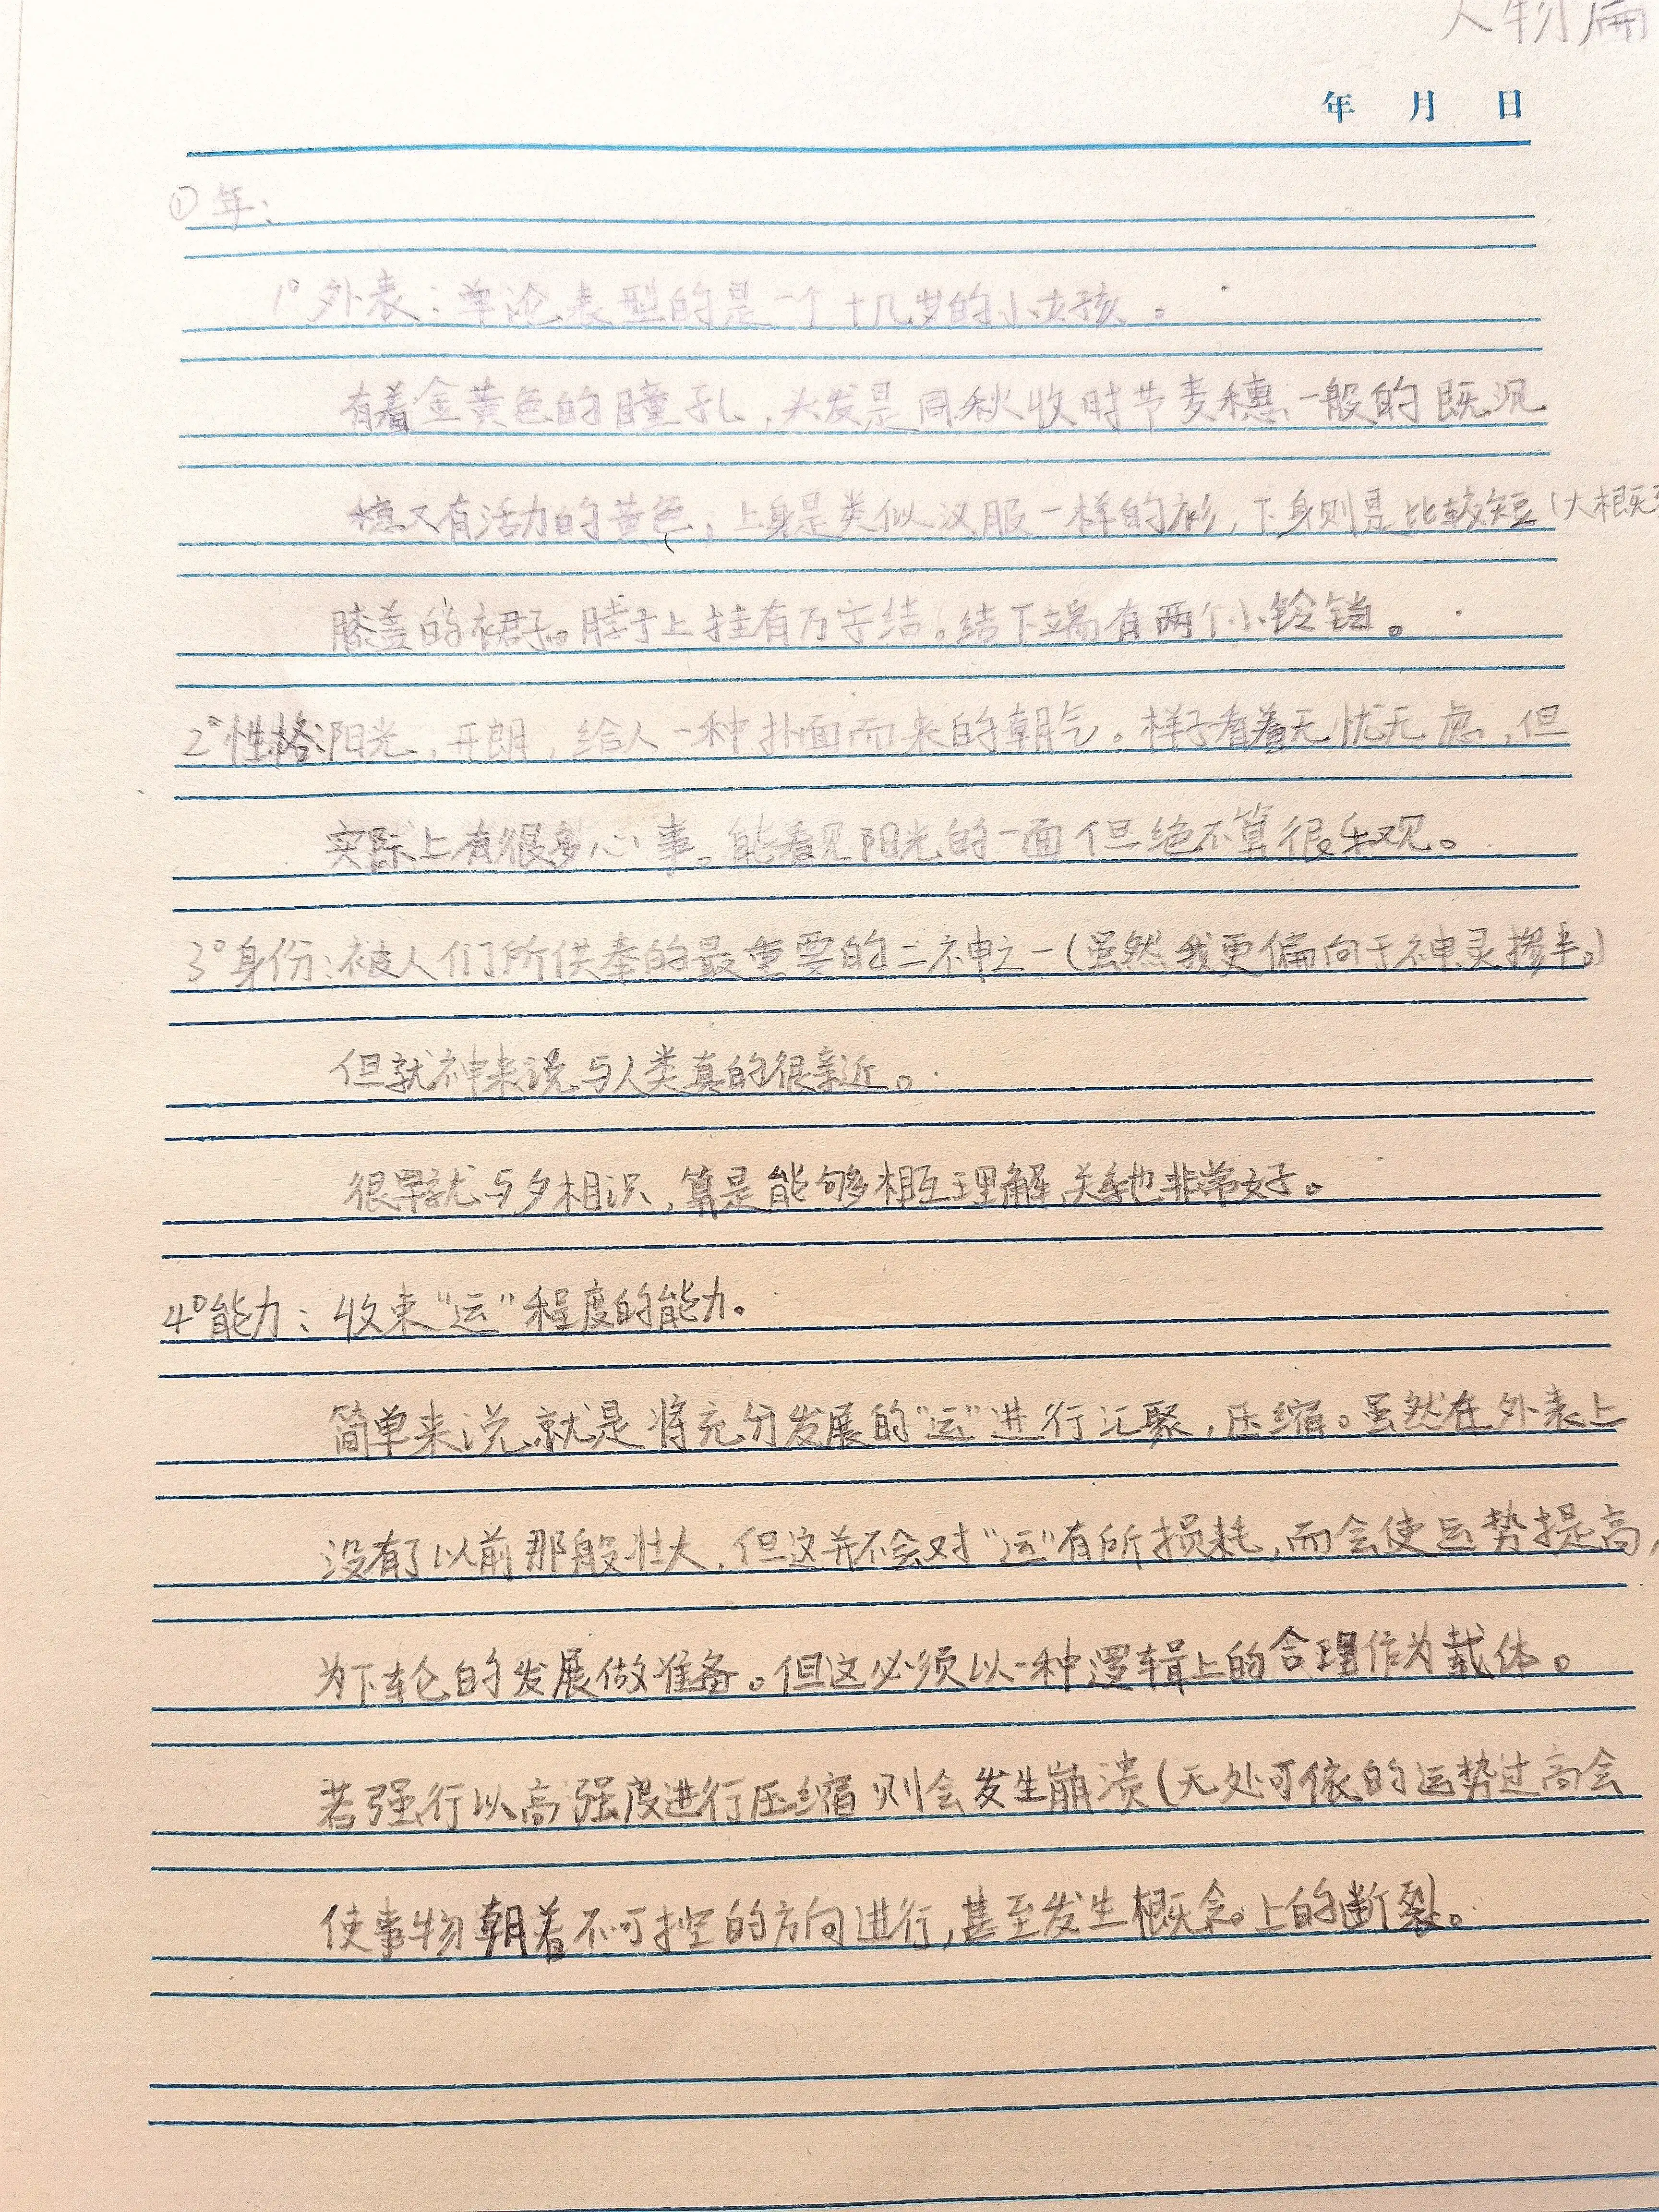 人物篇
年 月 日
① 年:
1° 外表:单论表型的是一个十几岁的小女孩。
有着金黄色的瞳孔,头发是同秋收时节麦穗一般的既沉
稳又有活力的黄色,上身是类似汉服一样的衫,下身则是比较短(大概到
膝盖的裙子。脖子上挂有万字结。结下端有两个小铃铛。
2° 性格:阳光,开朗,给人一种扑面而来的朝气。样子看着无忧无虑,但
实际上有很多心事。能看见阳光的一面但绝不算很乐观。
3° 身份:被人们所供奉的最重要的二神之一(虽然我更偏向于神灵掺半。)
但就神来说与人类真的很亲近。
很早就与夕相识,算是能够相互理解,关系也非常好。
4° 能力:收束“运”程度的能力。
简单来说,就是将充分发展的“运”进行汇聚,压缩。虽然在外表上
没有了以前那般壮大,但这并不会对“运”有所损耗,而会使运势提高,
为下轮的发展做准备。但这必须以一种逻辑上的合理作为载体。
若强行以高强度进行压缩则会发生崩溃(无处可依的运势过高会
使事物朝着不可控的方向进行,甚至发生概念上的断裂)。